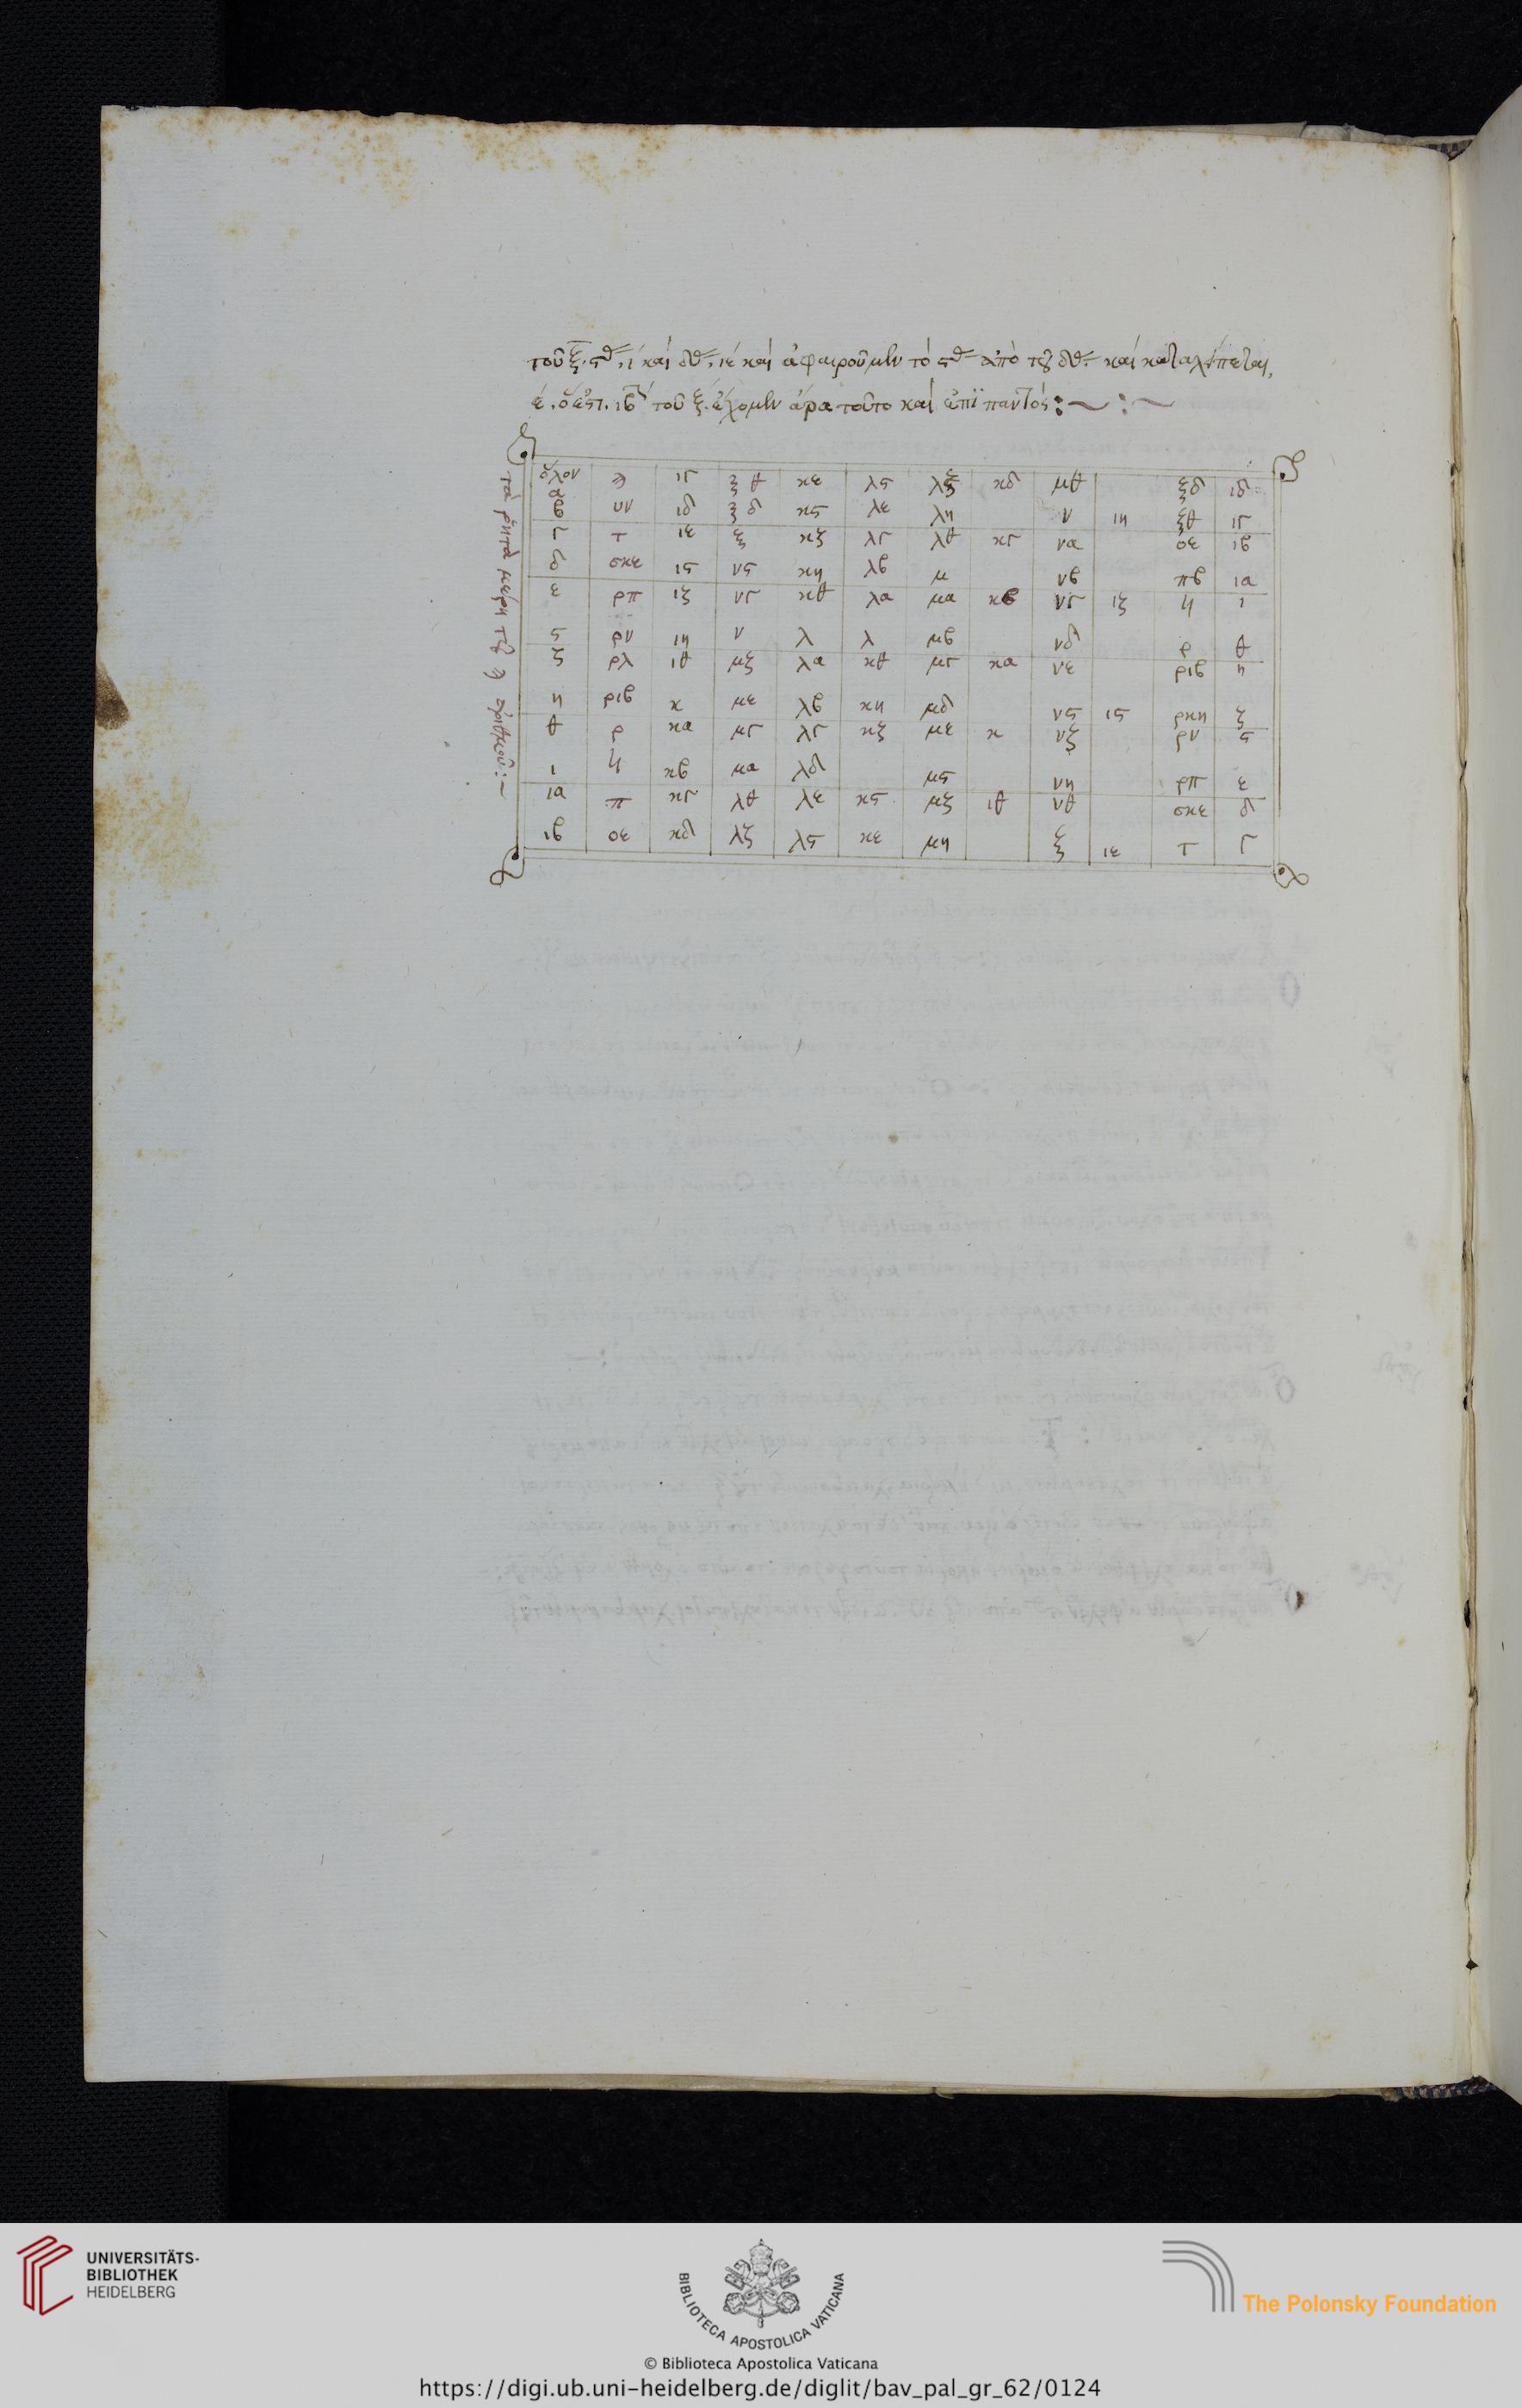 τοῦ ξ̅. ϛον. ι καὶ δον. ιε καὶ ἀφαιροῦμεν τὸ ϛον ἀπὸ τοῦ δου. καὶ καταλείπεται,
ε. ὅ ἐστι. ιβον τοῦ ξ. ἔχομεν ἄρα τοῦτο καὶ ἐπὶ παντός :~ :~
τὰ ῥητὰ μέρη τοῦ ϡ ἀριθμοῦ :~
ὅλον α ϡ ιγ ξθ κε λϛ λζ κδ μθ ξδ ιδ
β υν ιδ ξδ κϛ λε λη ν ιη ξθ ιγ
γ τ ιε ξ κζ λγ λθ κγ να οε ιβ
δ σκε ιϛ νϛ κη λβ μ νβ πβ ια
ε ρπ ιζ νγ κθ λα μα κβ νγ ιζ ϟ ι
ϛ ρν ιη ν λ λ μβ νδ ρ θ
ζ ρλ ιθ μζ λα κθ μγ κα νε ριβ η
η ριβ κ με λβ κη μδ νϛ ιϛ ρκη ζ
θ ρ κα μγ λγ κζ με κ νζ ρν ϛ
ι ϟ κβ μα λδ μϛ νη ρπ ε
ια π κγ λθ λε κϛ μζ ιθ νθ σκε δ
ιβ οε κδ λζ λϛ κε μη ξ ιε τ γ
UNIVERSITÄTS-
BIBLIOTHEK
HEIDELBERG
BIBLIOTECA APOSTOLICA VATICANA
The Polonsky Foundation
© Biblioteca Apostolica Vaticana
https://digi.ub.uni-heidelberg.de/diglit/bav_pal_gr_62/0124